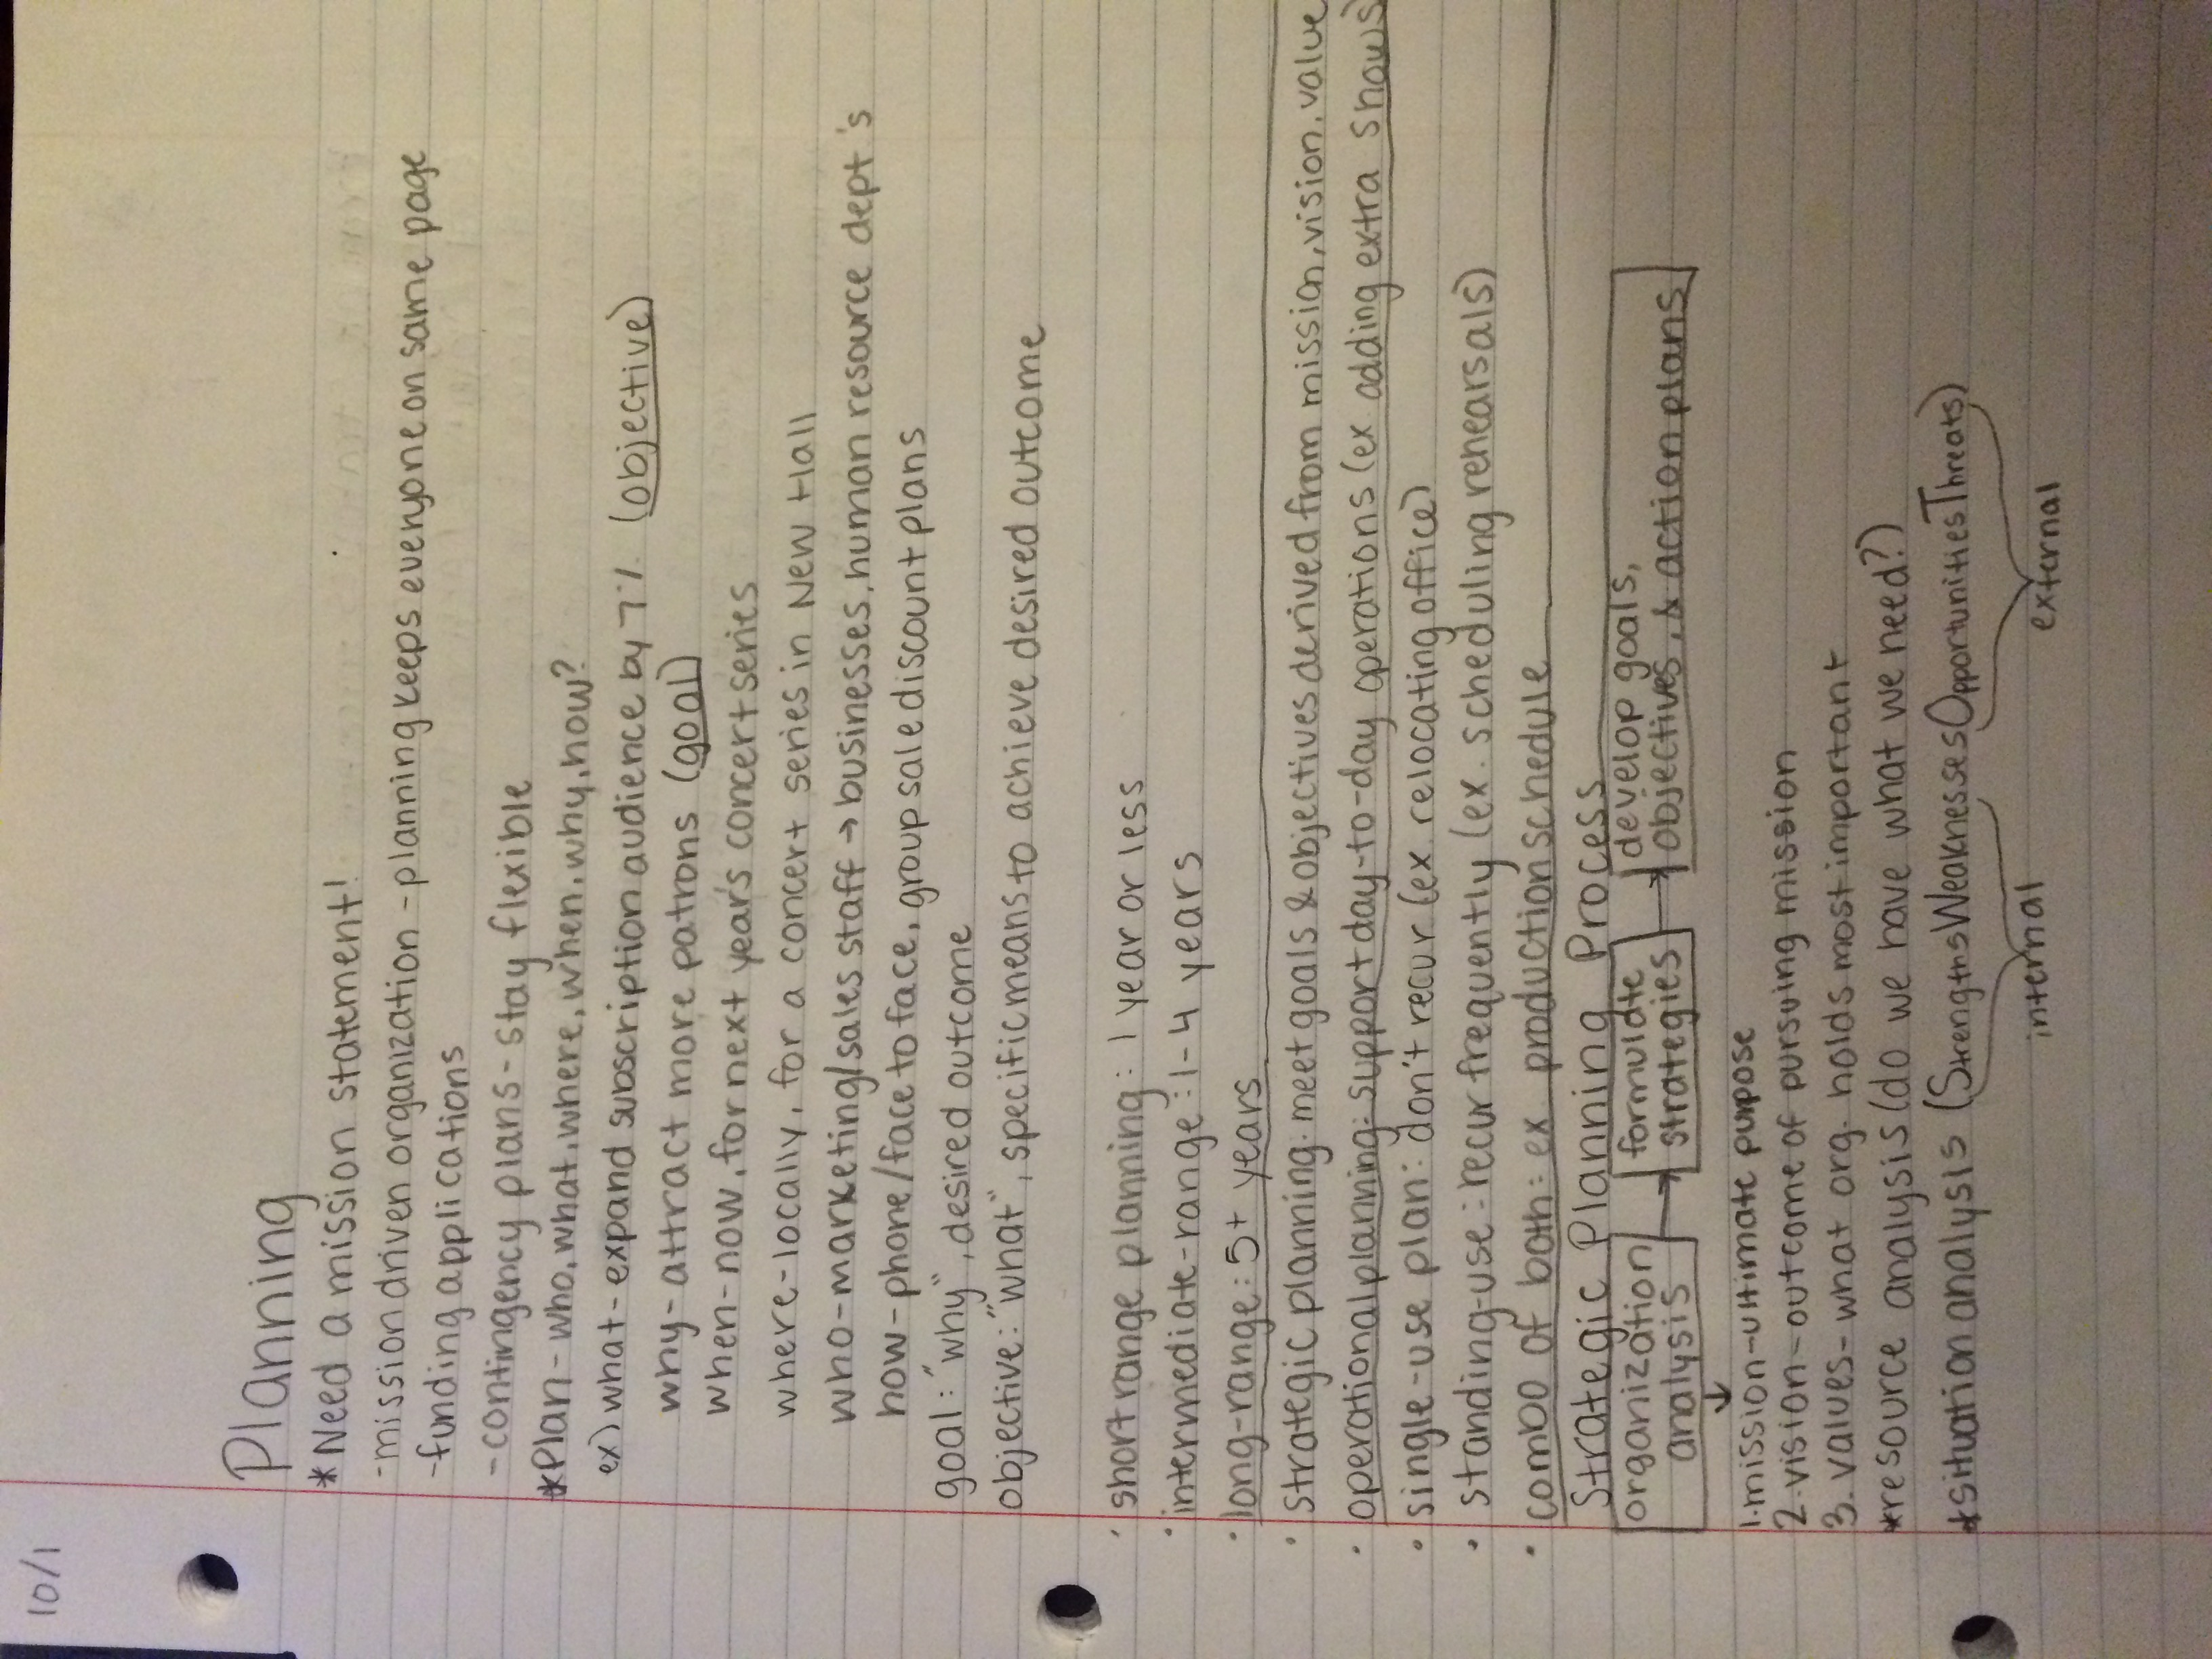 10/1
Planning
*Need a mission statement!
-mission driven organization - planning keeps everyone on same page
-funding applications
-contingency plans - stay flexible
*Plan - who, what, where, when, why, how?
ex) what - expand subscription audience by 7% (objective)
why - attract more patrons (goal)
when - now, for next year's concert series
where - locally, for a concert series in New Hall
who - marketing/sales staff → businesses, human resource dept's
how - phone/face to face, group sale discount plans
goal: "why", desired outcome
objective: "what", specific means to achieve desired outcome
· short range planning: 1 year or less
· intermediate-range: 1-4 years
· long-range: 5+ years
· strategic planning: meet goals & objectives derived from mission, vision, value
· operational planning: support day-to-day operations (ex adding extra shows)
· single-use plan: don't recur (ex relocating office)
· standing-use: recur frequently (ex. scheduling rehearsals)
· combo of both: ex production schedule
Strategic Planning Process
organization analysis → formulate strategies → develop goals, objectives, & action plans
↓
1. mission - ultimate purpose
2. vision - outcome of pursuing mission
3. values - what org. holds most important
*resource analysis (do we have what we need?)
*situation analysis (Strengths Weaknesses Opportunities Threats)
internal external